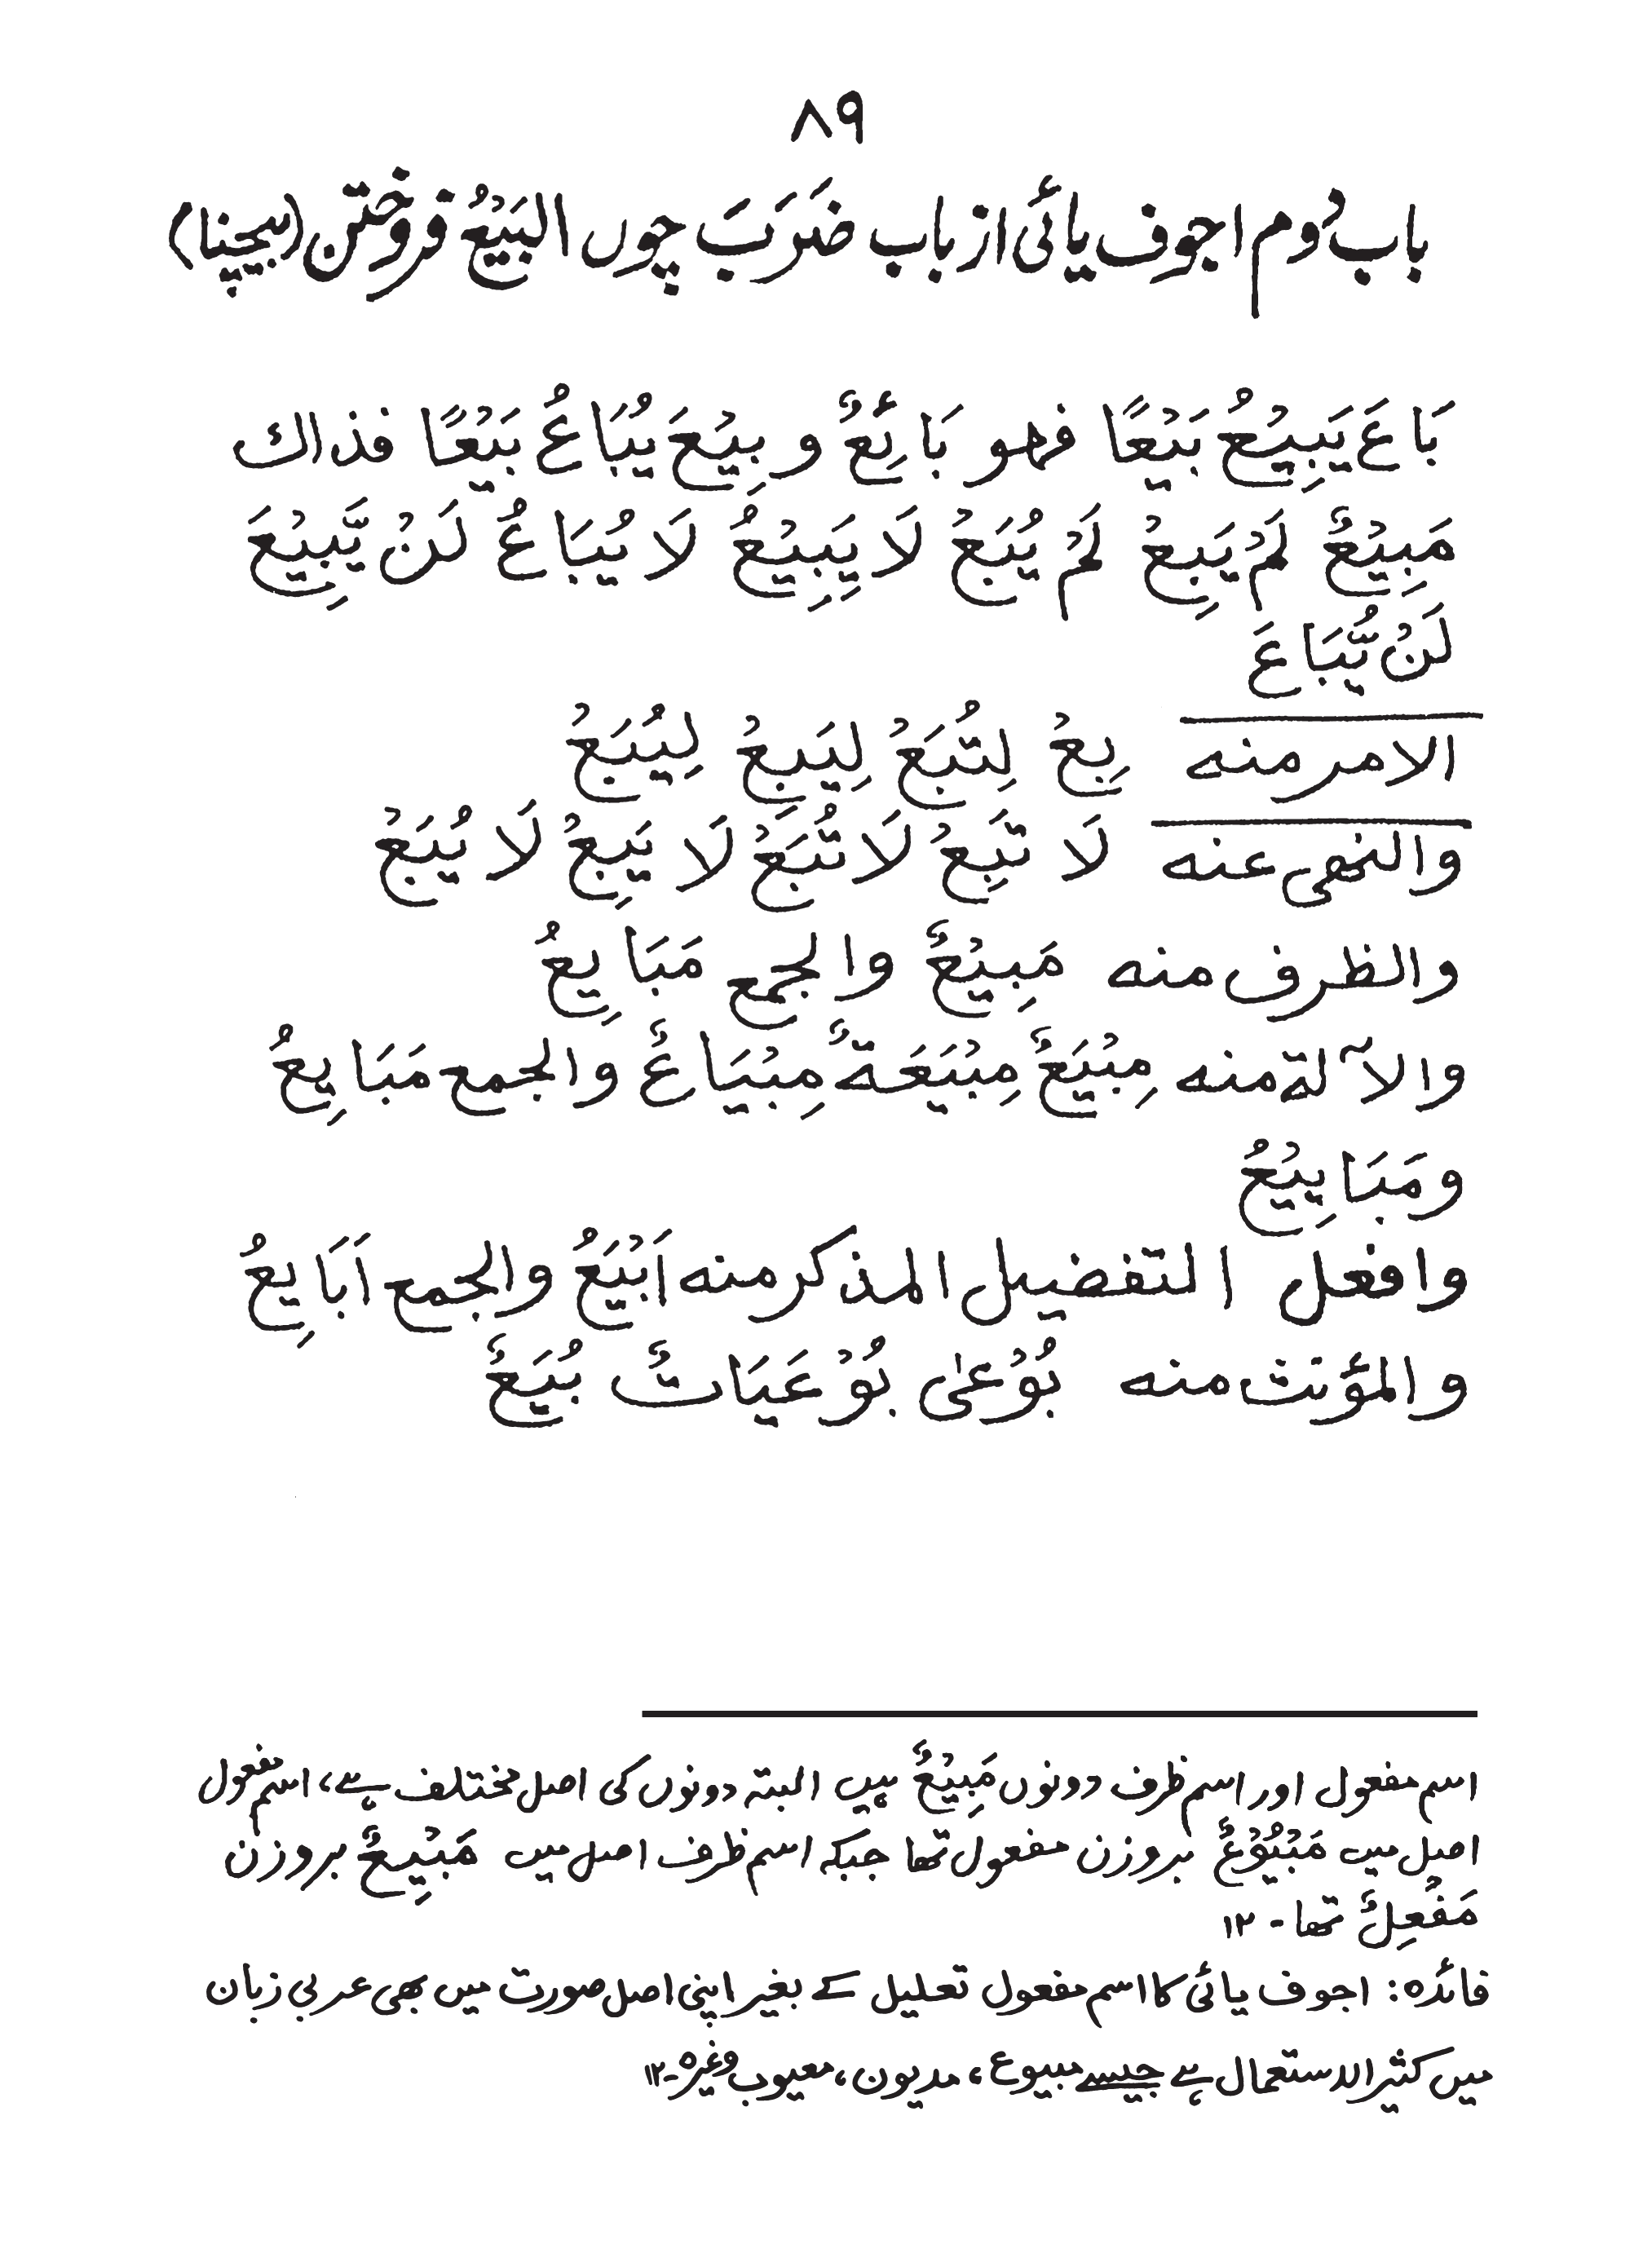 ۸۹
باب دُوم اجوف یائی از باب ضَرَبَ چوں البَیْعُ فروختن (بیچنا)
بَاعَ يَبِيْعُ بَيْعًا فهو بَائِعٌ و بِيْعَ يُبَاعُ بَيْعًا فذاك
مَبِيْعٌ لَمْ يَبِعْ لَمْ يُبَعْ لَا يَبِيْعُ لَا يُبَاعُ لَنْ يَّبِيْعَ
لَنْ يُّبَاعَ
الامر منه بِعْ لِتُبَعْ لِيَبِعْ لِيُبَعْ
والنهى عنه لَا تَبِعْ لَا تُبَعْ لَا يَبِعْ لَا يُبَعْ
والظرف منه مَبِيْعٌ والجمع مَبَايِعُ
والآلة منه مِبْيَعٌ مِبْيَعَةٌ مِبْيَاعٌ والجمع مَبَايِعُ
ومَبَايِيْعُ
وافعل التفضيل المذكر منه اَبْيَعُ والجمع اَبَايِعُ
والمؤنث منه بُوْعىٰ بُوْعَيَاتٌ بُيَعٌ
اسم مفعول اور اسم ظرف دونوں مَبِیْعٌ ہیں البتہ دونوں کی اصل مختلف ہے، اسم مفعول
اصل میں مَبْیُوْعٌ بروزن مفعول تھا جبکہ اسم ظرف اصل میں مَبْیِعٌ بروزن
مَفْعِلٌ تھا۔ ۱۲
فائدہ: اجوف یائی کا اسم مفعول تعلیل کے بغیر اپنی اصل صورت میں بھی عربی زبان
میں کثیر الاستعمال ہے جیسے مبیوع، مدیون، معیوب وغیرہ۔۱۲